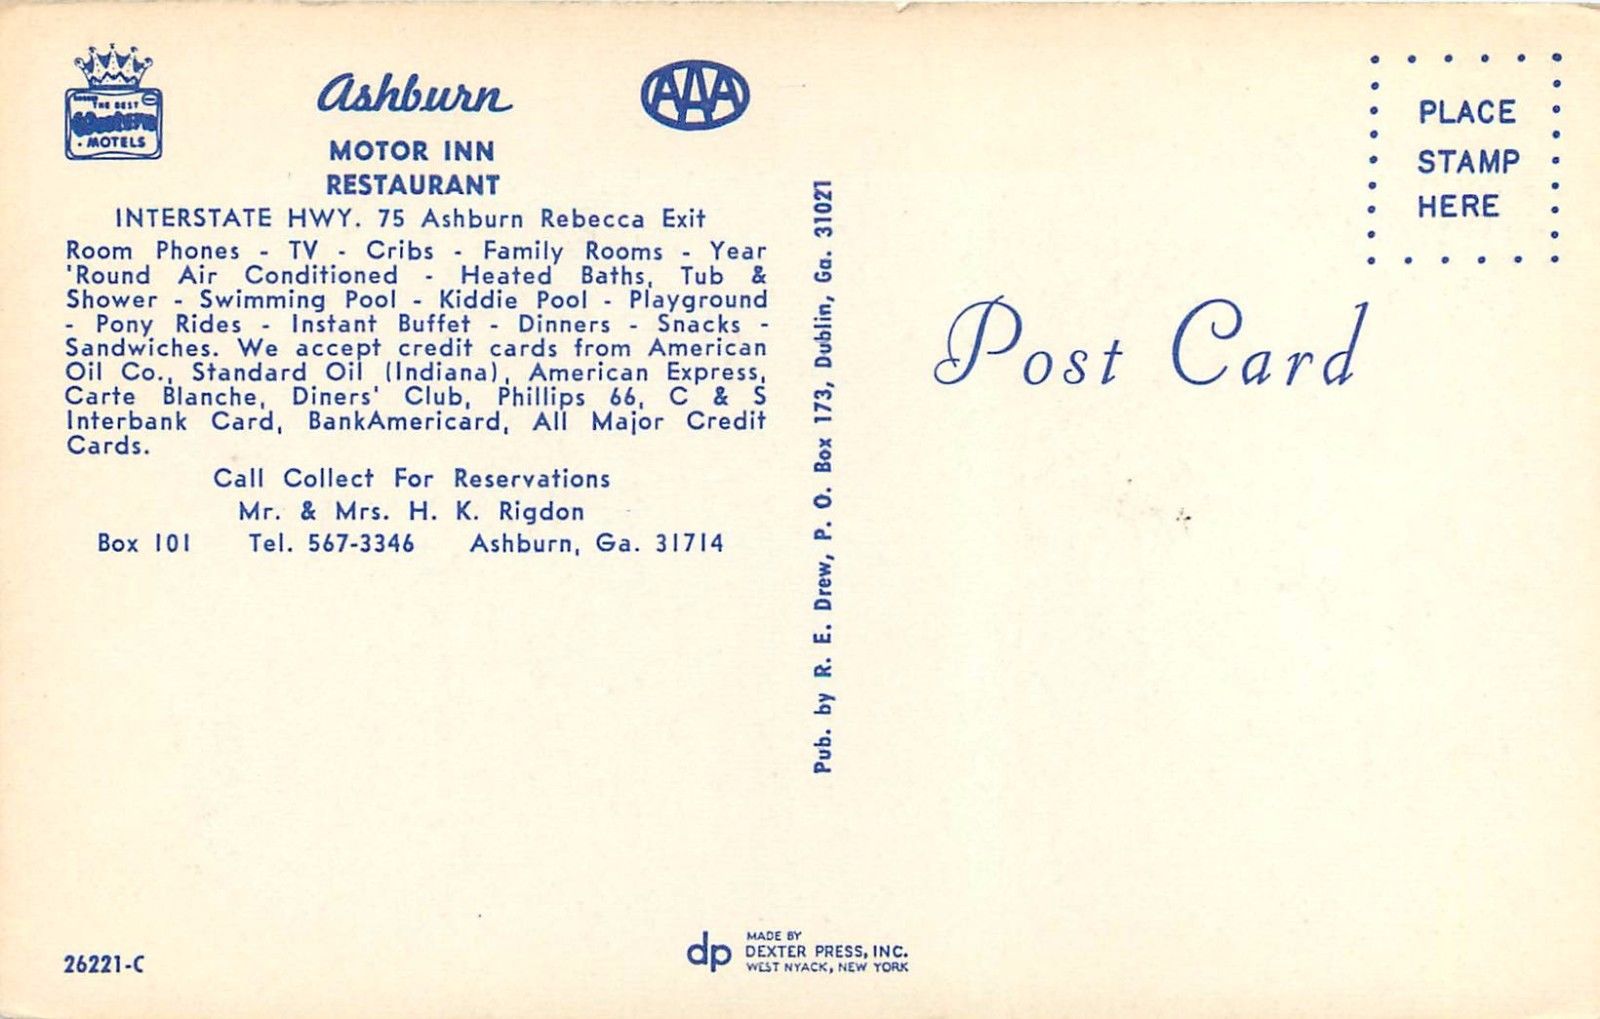 THE BEST
Western
MOTELS
Ashburn
AAA
MOTOR INN
RESTAURANT
INTERSTATE HWY. 75 Ashburn Rebecca Exit
Room Phones - TV - Cribs - Family Rooms - Year
'Round Air Conditioned - Heated Baths, Tub &
Shower - Swimming Pool - Kiddie Pool - Playground
- Pony Rides - Instant Buffet - Dinners - Snacks -
Sandwiches. We accept credit cards from American
Oil Co., Standard Oil (Indiana), American Express,
Carte Blanche, Diners' Club, Phillips 66, C & S
Interbank Card, BankAmericard, All Major Credit
Cards.
Call Collect For Reservations
Mr. & Mrs. H. K. Rigdon
Box 101 Tel. 567-3346 Ashburn, Ga. 31714
26221-C
Pub. by R. E. Drew, P. O. Box 173, Dublin, Ga. 31021
dp
MADE BY
DEXTER PRESS, INC.
WEST NYACK, NEW YORK
PLACE
STAMP
HERE
Post Card